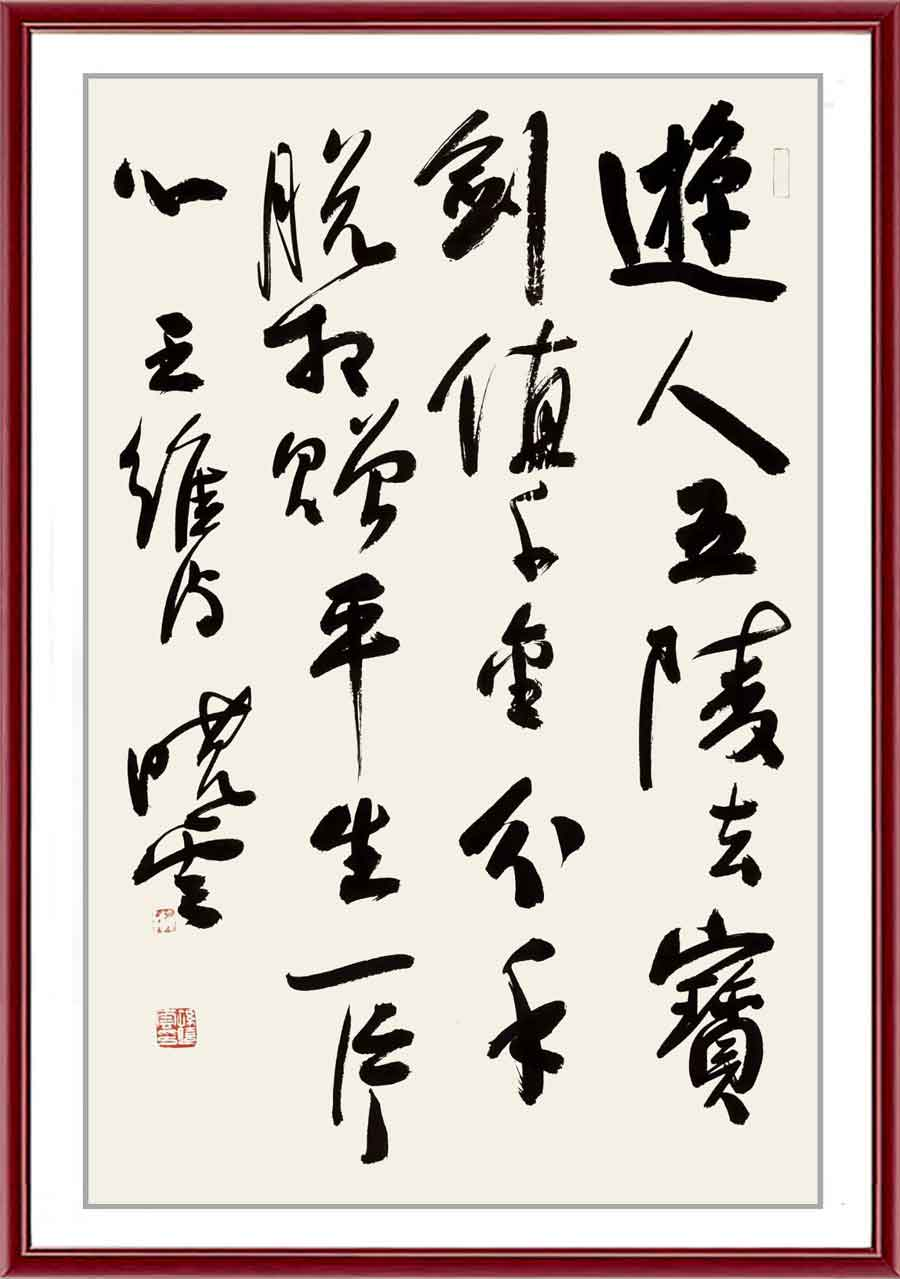 遊人五陵去寶
劍值千金分手
脫相贈平生一片
心 王維诗 曉雲